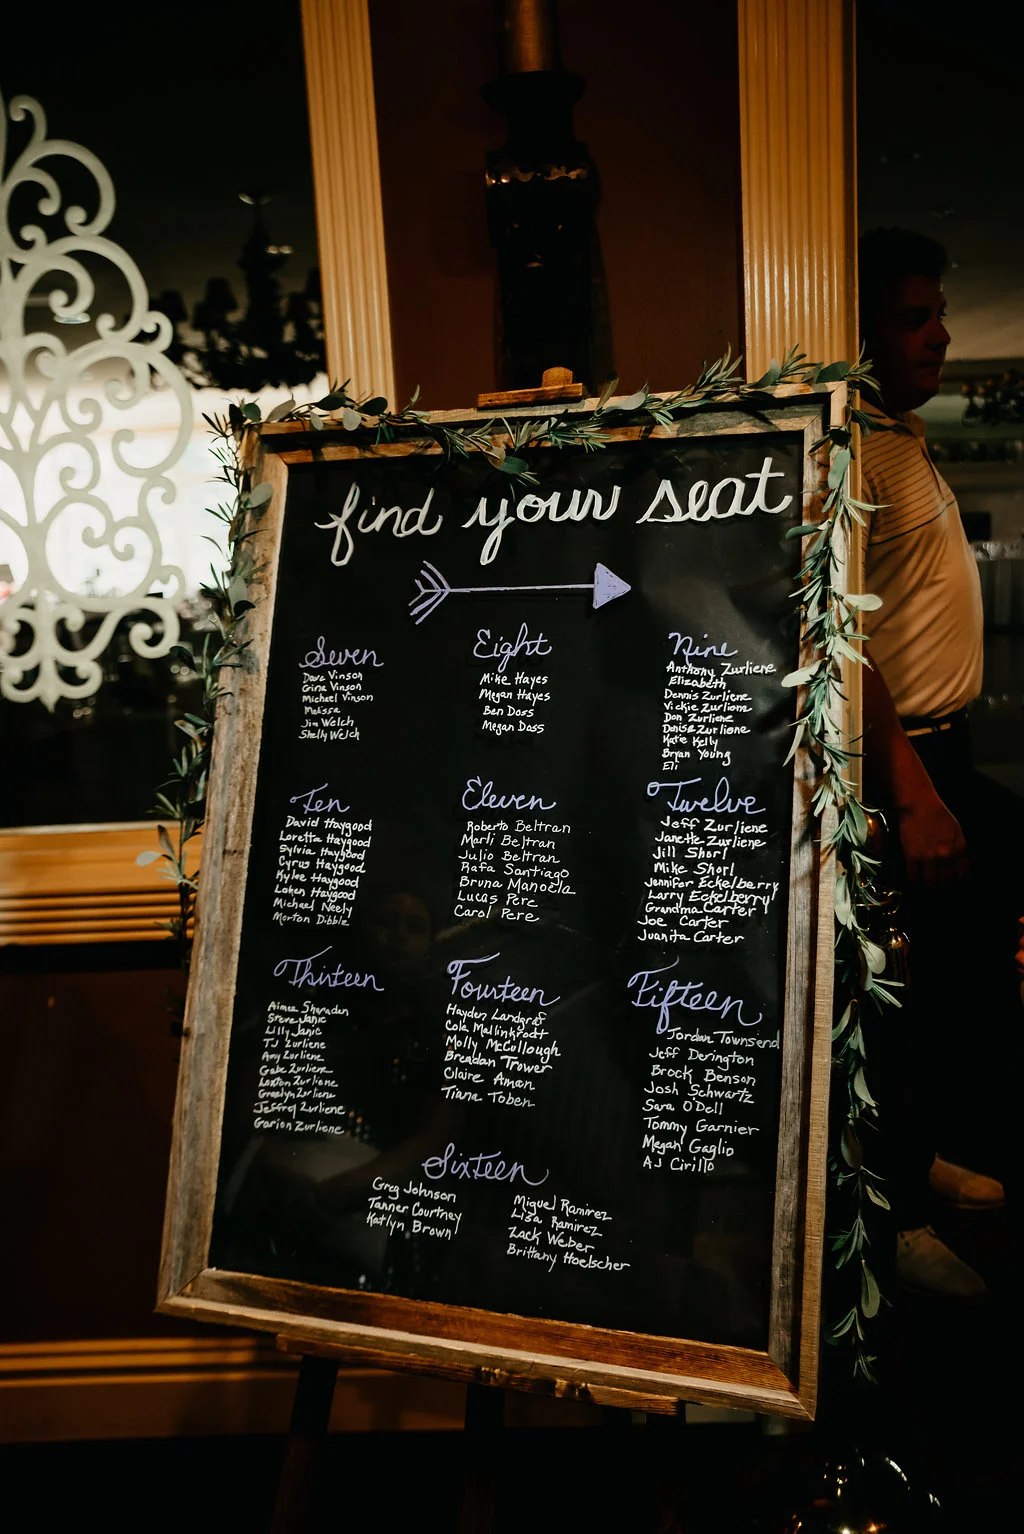 find your seat
Seven
Dave Vinson
Gina Vinson
Michael Vinson
Melissa
Jim Welch
Shelly Welch
Eight
Mike Hayes
Megan Hayes
Ben Doss
Megan Doss
Nine
Anthony Zurliene
Elizabeth
Dennis Zurliene
Vickie Zurliene
Don Zurliene
Denise Zurliene
Kate Kelly
Bryan Young
Eli
Ten
David Haygood
Loretta Haygood
Sylvia Haygood
Cyrus Haygood
Kylee Haygood
Loken Haygood
Michael Neely
Morton Dibble
Eleven
Roberto Beltran
Marli Beltran
Julio Beltran
Rafa Santiago
Bruna Manoela
Lucas Pere
Carol Pere
Twelve
Jeff Zurliene
Janette Zurliene
Jill Shorl
Mike Shorl
Jennifer Eckelberry
Larry Eckelberry
Grandma Carter
Joe Carter
Juanita Carter
Thirteen
Aimee
Steve Janic
Lilly Janic
TJ Zurliene
Amy Zurliene
Gabe Zurliene
Laxton Zurliene
Graelyn Zurliene
Jeffrey Zurliene
Garion Zurliene
Fourteen
Hayden Landgraf
Cole Mallinkrodt
Molly McCullough
Brendan Trower
Claire Aman
Tiana Toben
Fifteen
Jordan Townsend
Jeff Derington
Brock Benson
Josh Schwartz
Sara O'Dell
Tommy Garnier
Megan Gaglio
AJ Cirillo
Sixteen
Greg Johnson
Tanner Courtney
Katlyn Brown
Miguel Ramirez
Lisa Ramirez
Zack Weber
Brittany Hoelscher